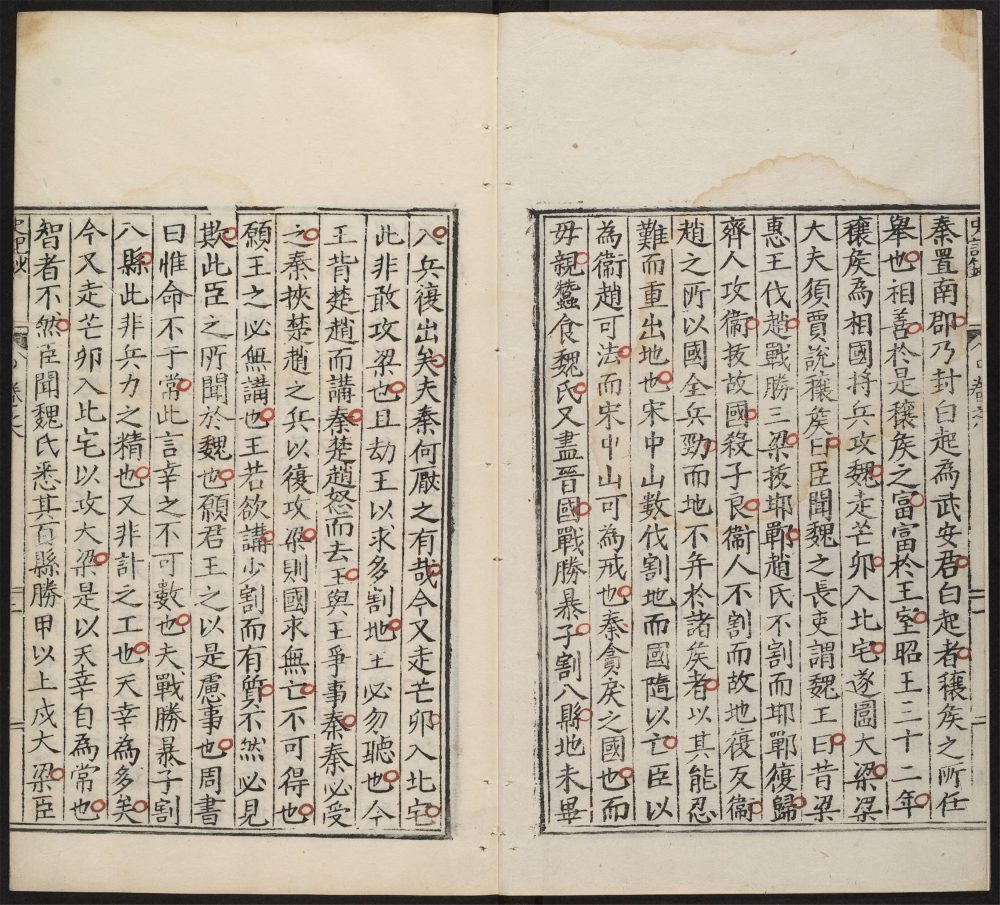 秦置南郡乃封白起為武安君白起者穰矦之所任
舉也相善於是穰矦之富富於王室昭王三十二年
穰矦為相國將兵攻魏走芒卯入北宅遂圍大梁梁
大夫須賈說穰矦曰臣聞魏之長吏謂魏王曰昔梁
惠王伐趙戰勝三梁拔邯鄲趙氏不割而邯鄲復歸
齊人攻衞拔故國殺子良衞人不割而故地復反衞
趙之所以國全兵勁而地不并於諸矦者以其能忍
難而重出地也宋中山數伐割地而國隨以亡臣以
為衞趙可法而宋中山可為戒也秦貪戾之國也而
毋親蠶食魏氏又盡晉國戰勝暴子割八縣地未畢
入兵復出矣夫秦何厭之有哉今又走芒卯入北宅
此非敢攻梁也且劫王以求多割地王必勿聽也今
王背楚趙而講秦楚趙怒而去王與王爭事秦秦必受
之秦挾楚趙之兵以復攻梁則國求無亡不可得也
願王之必無講也王若欲講少割而有質不然必見
欺此臣之所聞於魏也願君王之以是慮事也周書
曰惟命不于常此言幸之不可數也夫戰勝暴子割
八縣此非兵力之精也又非計之工也天幸為多矣
今又走芒卯入北宅以攻大梁是以天幸自為常也
智者不然臣聞魏氏悉其百縣勝甲以上戍大梁臣